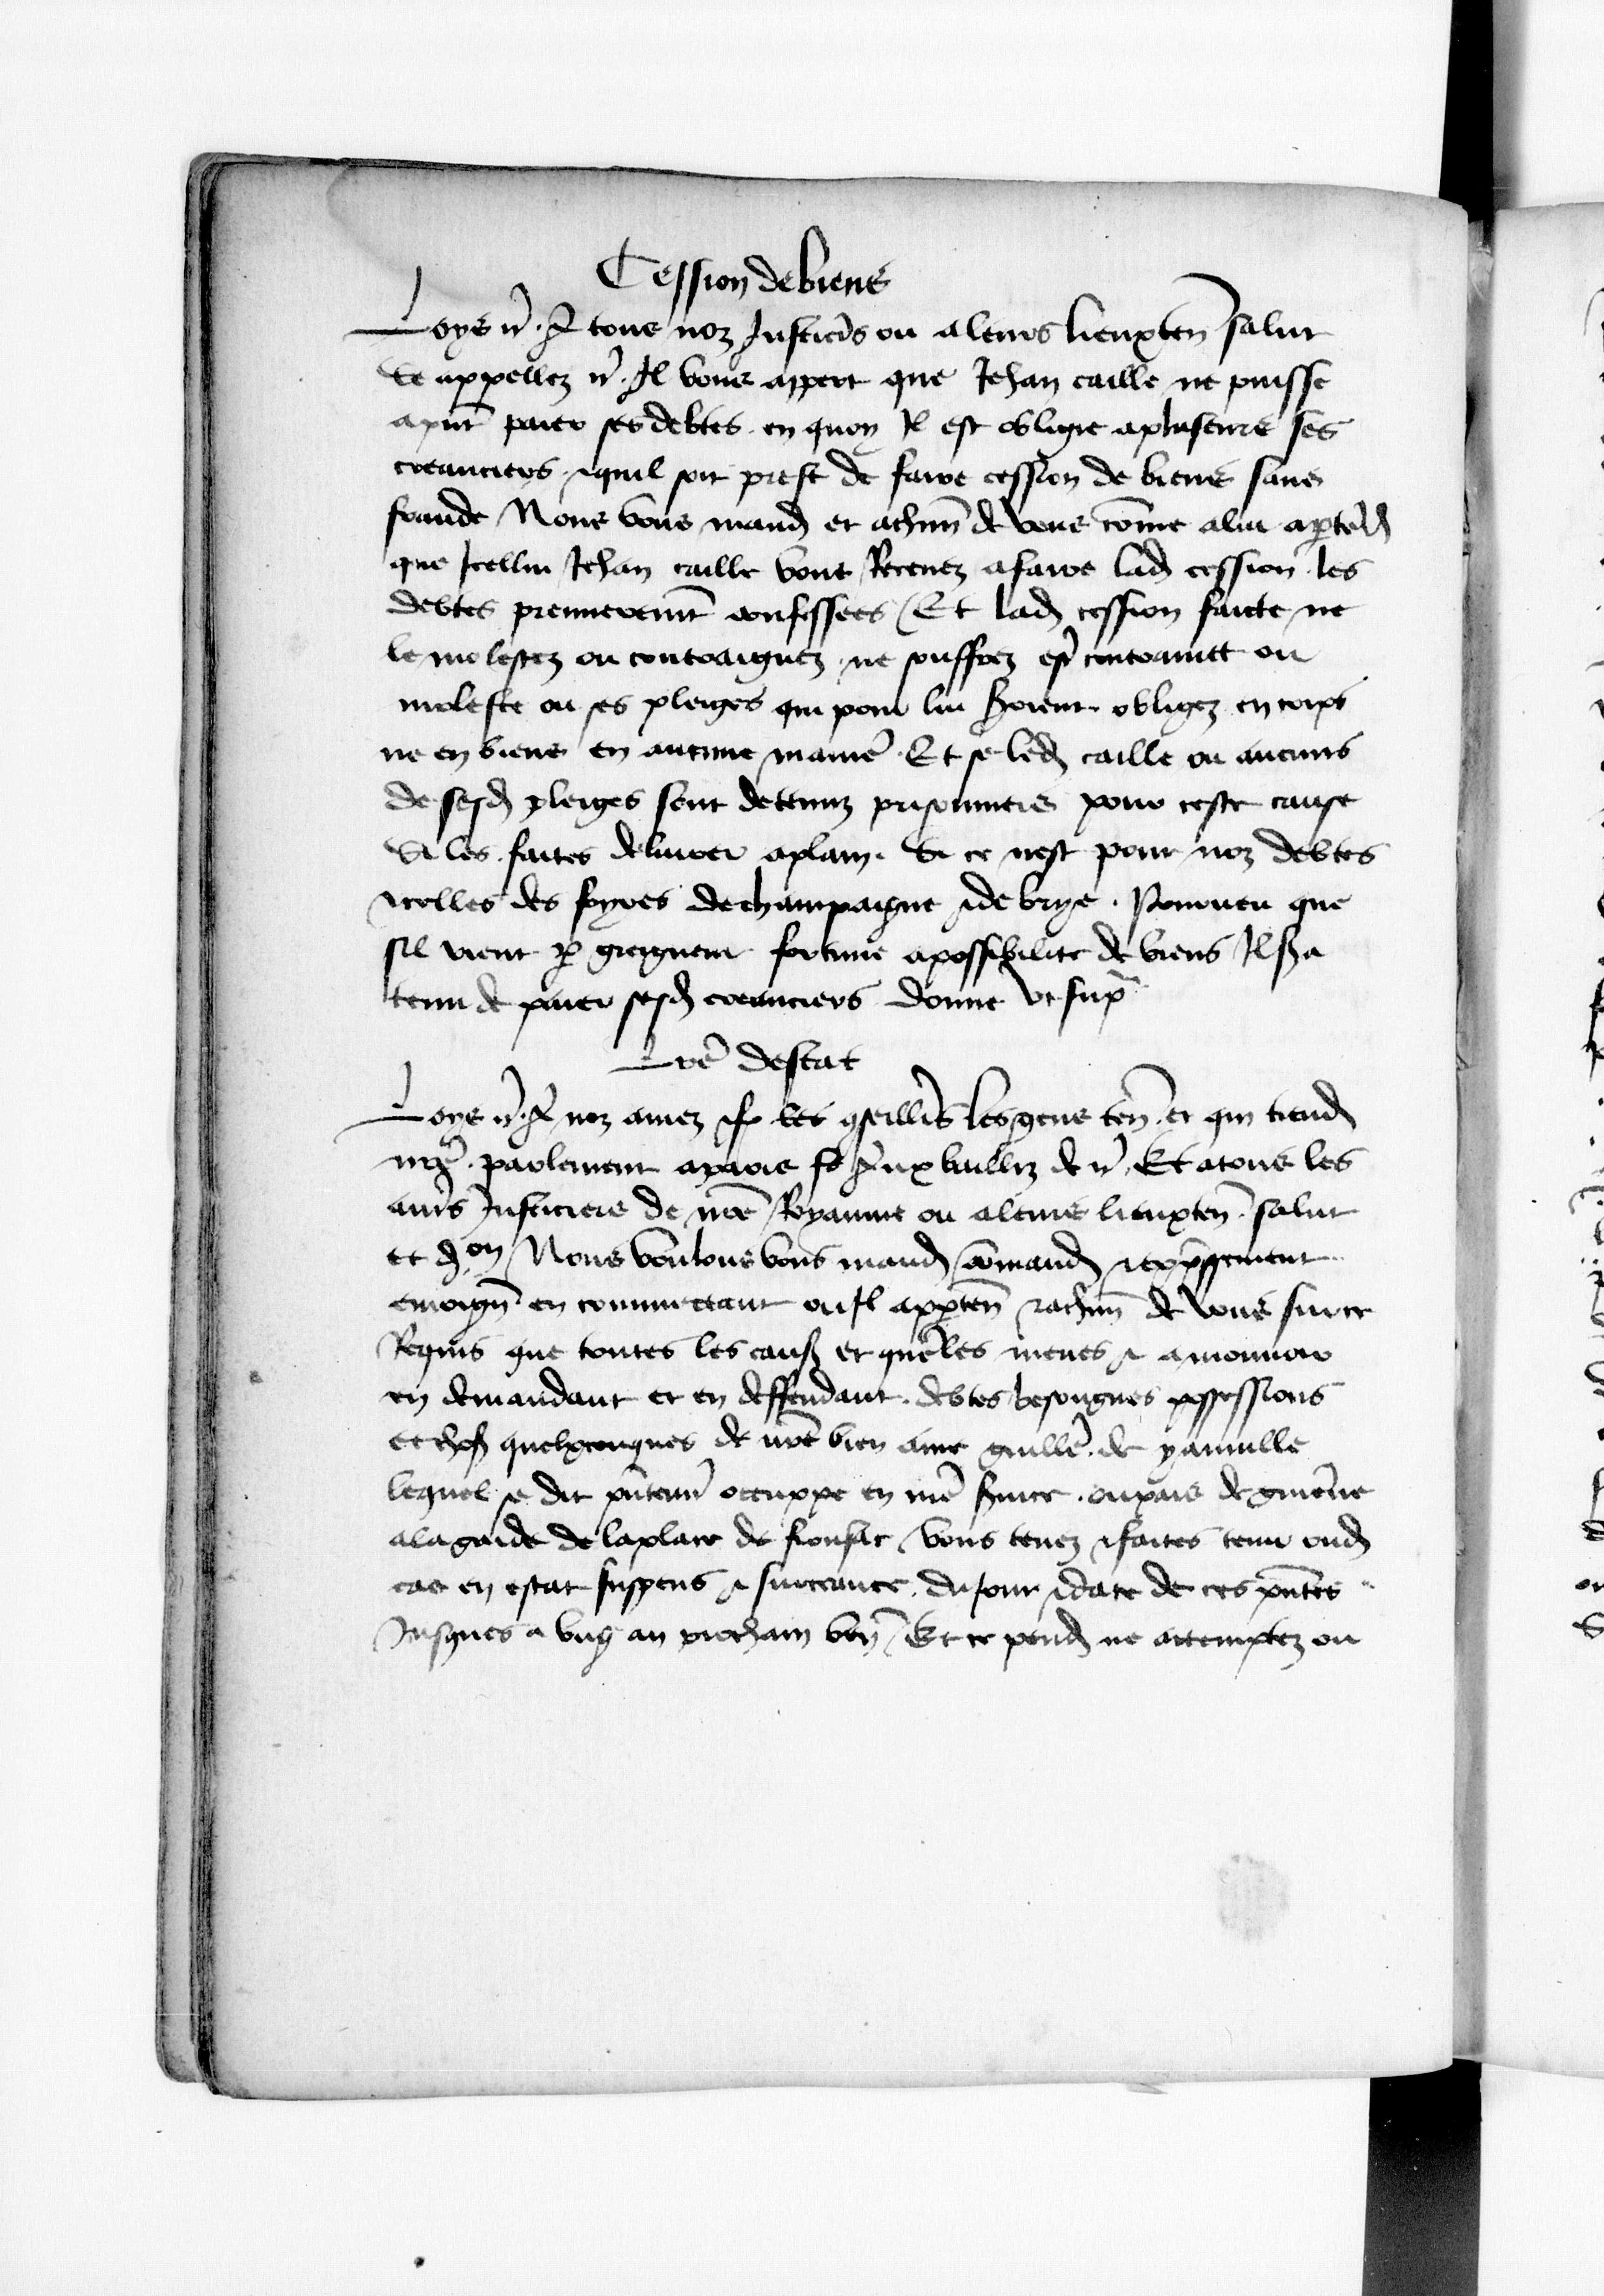 Cession de biens
Loys et̃. A tous noz Justicĩs ou a leurs lieuxteñ salut
Se appellez et̃. Il vous appert que Jehan caille ne puisse
a pñt paier ses debtes en quoy Il est obligie a pluseurs ses
creanciers ⁊ quil soit prest de faire cession de biens sans
fraude Nous vous mand et a chũn de vous cõme a lui apartẽd
que Icellui Jehan caille vous Recevez a faire lad cession les
debtes premieremt̃ confessees Et lad cession faicte ne
le molestez ou contraignez ne souffrez esr̃ contrainct ou
moleste ou ses pleiges qui pour lui seroient obligez en corps
ne en biens en aucune manie᷑ Et se led caille ou aucuns
de sesd pleiges sont detenuz prisonniers pour ceste cause
Si les faites delivrer a plain Se ce nest pour noz debtes
⁊ celles des foyres de champaigne ⁊ de brye. Pourveu que
sil vient p greigneur fortune a possibilite de biens Il sra
tenu de paier sesd creanciers donne ut sup̃
Lrẽ destat
Loys et̃. A noz amez ⁊ f. les cõseillĩs les gens teñ et qui tiend
nrẽ parlement a paris Aux bailliz de et̃ Et a tous les
aut̃s Justiciers de nrẽ Royaume ou a leurs lieuxteñ salut
et d.on Nous voulons vous mand cõmand ⁊ exp̃ssement
enioigñ en commettant ou Il apparteñ ⁊ a chũn de vous sur ce
Requis que toutes les caus et quẽles meues ⁊ a mouvoir
en demandant et en deffendant debtes besongnes possessions
et chos quelxconques de nrẽ bien ame guillẽ de yanville
lequel se dit pñtemt̃ occuppe en nrẽ svice ou pais de guiẽne
a la garde de la place de fronsac vous tenez ⁊ faites tenir oud
cas en estat suspens ⁊ surceance du Jour ⁊ date de ces pñtes
Jusques a ung an prochain veñ Et ce pend ne attemptez ou